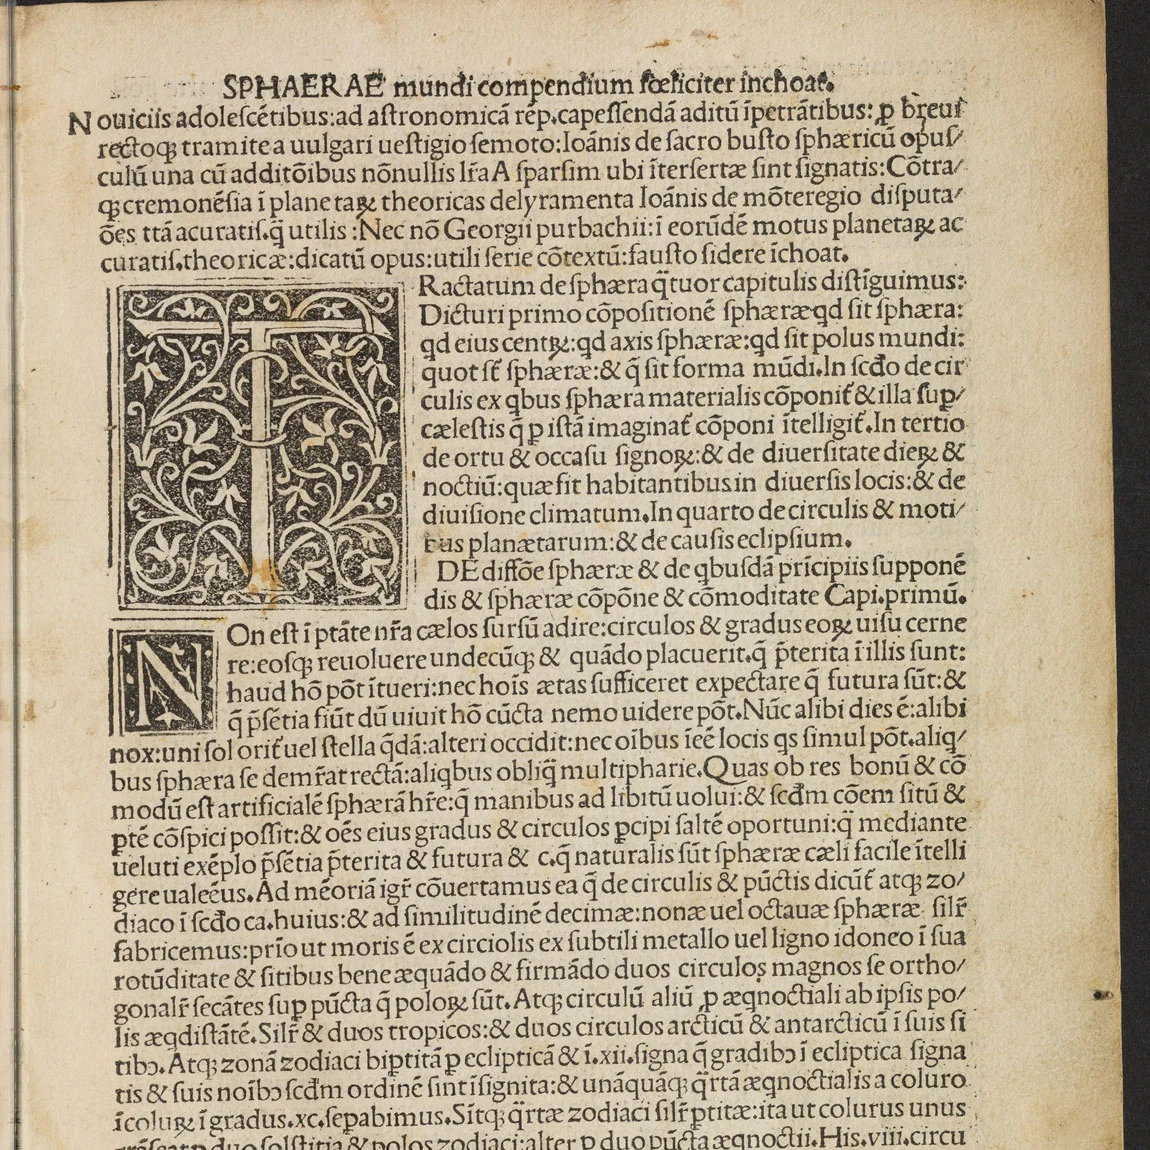 SPHAERAE mundi compendium fœliciter inchoat.
Nouiciis adolescẽtibus:ad astronomicã rẽp.capessendã aditũ ĩpetrãtibus:ꝓ breui
rectoqꝫ tramite a uulgari uestigio semoto:Ioãnis de sacro busto sphæricũ opus⸗
culũ una cũ additõibus nõnullis lr̃a A sparsim ubi ĩtersertæ sint signatis:Cõtra⸗
qꝫ cremonẽsia ĩ planetaꝝ theoricas delyramenta Ioãnis de mõteregio disputa⸗
ões ttã acuratis.q̃ utilis:Nec nõ Georgii purbachii:ĩ eorũdẽ motus planetaꝝ ac
curatis.theoricæ:dicatũ opus:utili serie cõtextũ:fausto sidere ĩchoat.
TRactatum de sphæra q̃tuor capitulis distĩguimus:
Dicturi primo cõpositionẽ sphæræ qd sit sphæra:
qd eius centꝝ:qd axis sphæræ:qd sit polus mundi:
quot st̃ sphæræ:& q̃ sit forma mũdi.In scđo de cir
culis ex qbus sphæra materialis cõponit̃ & illa sup⸗
cælestis q̃ ꝑ istã imaginat̃ cõponi ĩtelligit̃.In tertio
de ortu & occasu signoꝝ:& de diuersitate dieꝝ &
noctiũ:quæ fit habitantibus in diuersis locis:& de
diuisione climatum.In quarto de circulis & moti⸗
bus planætarum:& de causis eclipsium.
DE diffõe sphæræ & de qbusdã prĩcipiis supponẽ
dis & sphæræ cõpõne & cõmoditate Capi.primũ.
NOn est ĩ ptãte nr̃a cælos sursũ adire:circulos & gradus eoꝝ uisu cerne
re:eosqꝫ reuoluere undecũqꝫ & quãdo placuerit.q̃ p̃terita ĩ illis sunt:
haud hõ põt ĩtueri:nec hoĩs ætas sufficeret expectare q̃ futura sũt:&
q̃ p̃sẽtia fiũt dũ uiuit hõ cũcta nemo uidere põt.Nũc alibi dies ẽ:alibi
nox:uni sol orit̃ uel stella q̃dã:alteri occidit:nec oĩbus ĩeẽ locis qs simul põt.aliq⸗
bus sphæra se demr̃at rectã:aliqbus obliq̃ multipharie.Quas ob res bonũ & cõ
modũ est artificialẽ sphærã hr̃e:q̃ manibus ad libitũ uolui:& scđm cõem sitũ &
ꝑtẽ cõspici possit:& oẽs eius gradus & circulos ꝑcipi saltẽ oportuni:q̃ mediante
ueluti exẽplo p̃sẽtia p̃terita & futura & c.q̃ naturalis sũt sphæræ cæli facile ĩtelli
gere ualeẽus.Ad mẽoriã igr̃ cõuertamus ea q̃ de circulis & pũctis dicũt̃ atqꝫ zo⸗
diaco ĩ scđo ca.huius:& ad similitudinẽ decimæ:nonæ uel octauæ sphæræ silr̃
fabricemus:prĩo ut moris ẽ ex circiolis ex subtili metallo uel ligno idoneo ĩ sua
rotũditate & sitibus bene æquãdo & firmãdo duos circulos magnos se ortho⸗
gonalr̃ secãtes sup pũcta q̃ poloꝝ sũt.Atqꝫ circulũ aliũ ꝓ æqnoctiali ab ipsis po⸗
lis æqdistãtẽ.Silr̃ & duos tropicos:& duos circulos arcticũ & antarcticũ ĩ suis si
tibꝰ.Atqꝫ zonã zodiaci biptitã ꝑ eclipticã & ĩ.xii.signa q̃ gradibꝰ ĩ ecliptica signa
tis & suis noĩbꝰ scđm ordinẽ sint ĩsignita:& unãquãqꝫ q̃rtã æqnoctialis a coluro
ĩ coluꝝ ĩ gradus.xc.sepabimus.Sĩtqꝫ q̃rtæ zodiaci silr̃ ꝑtitæ:ita ut colurus unus
duo solstitia & polos zodiaci:alter ꝑ duo pũcta æqnoctii.His.viii.circu